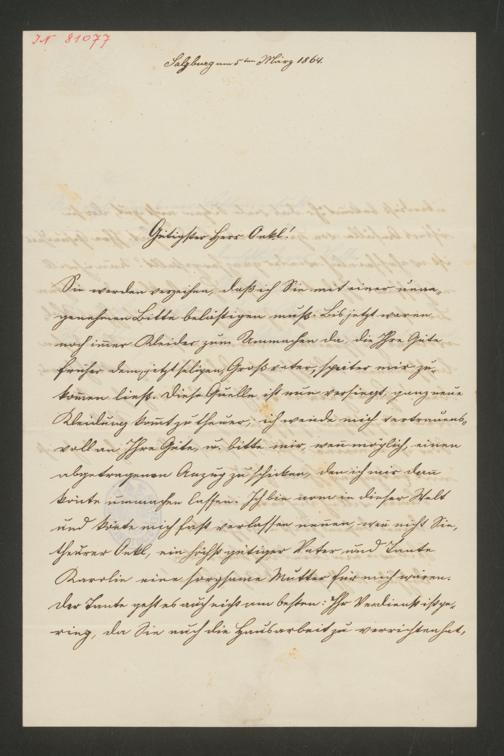 IN 81077
Salzburg am 5ten März 1864.
Gütigster Herr Onkl!
Sie werden verzeihen, daß ich Sie mit einer unan-
genehmen Bitte belästigen muß. Bis jetzt waren
noch im̄er Kleider zum Ummachen da, die Ihre Güte
früher dem jetzt seligen Großvater, später mir zu-
kom̄en ließ. Diese Quelle ist nun versiegt, ganz neue
Kleidung kom̄t zu theuer, ich wende mich vertrauens-
voll an Ihre Güte, u. bitte mir, wen̄ möglich, einen
abgetragenen Anzug zu schicken, den ich mir dan̄
kön̄te ummachen lassen. Ich bin arm in dieser Welt
und kön̄te mich fast verlassen nen̄en, wen̄ nicht Sie,
theurer Onkl, ein höchst gütiger Vater und Tante
Karolin eine sorgsame Mutter für mich wären.
Der Tante geht es auch nicht am besten: Ihr Verdienst ist ge-
ring, da Sie auch die Hausarbeit zu verrichten hat,